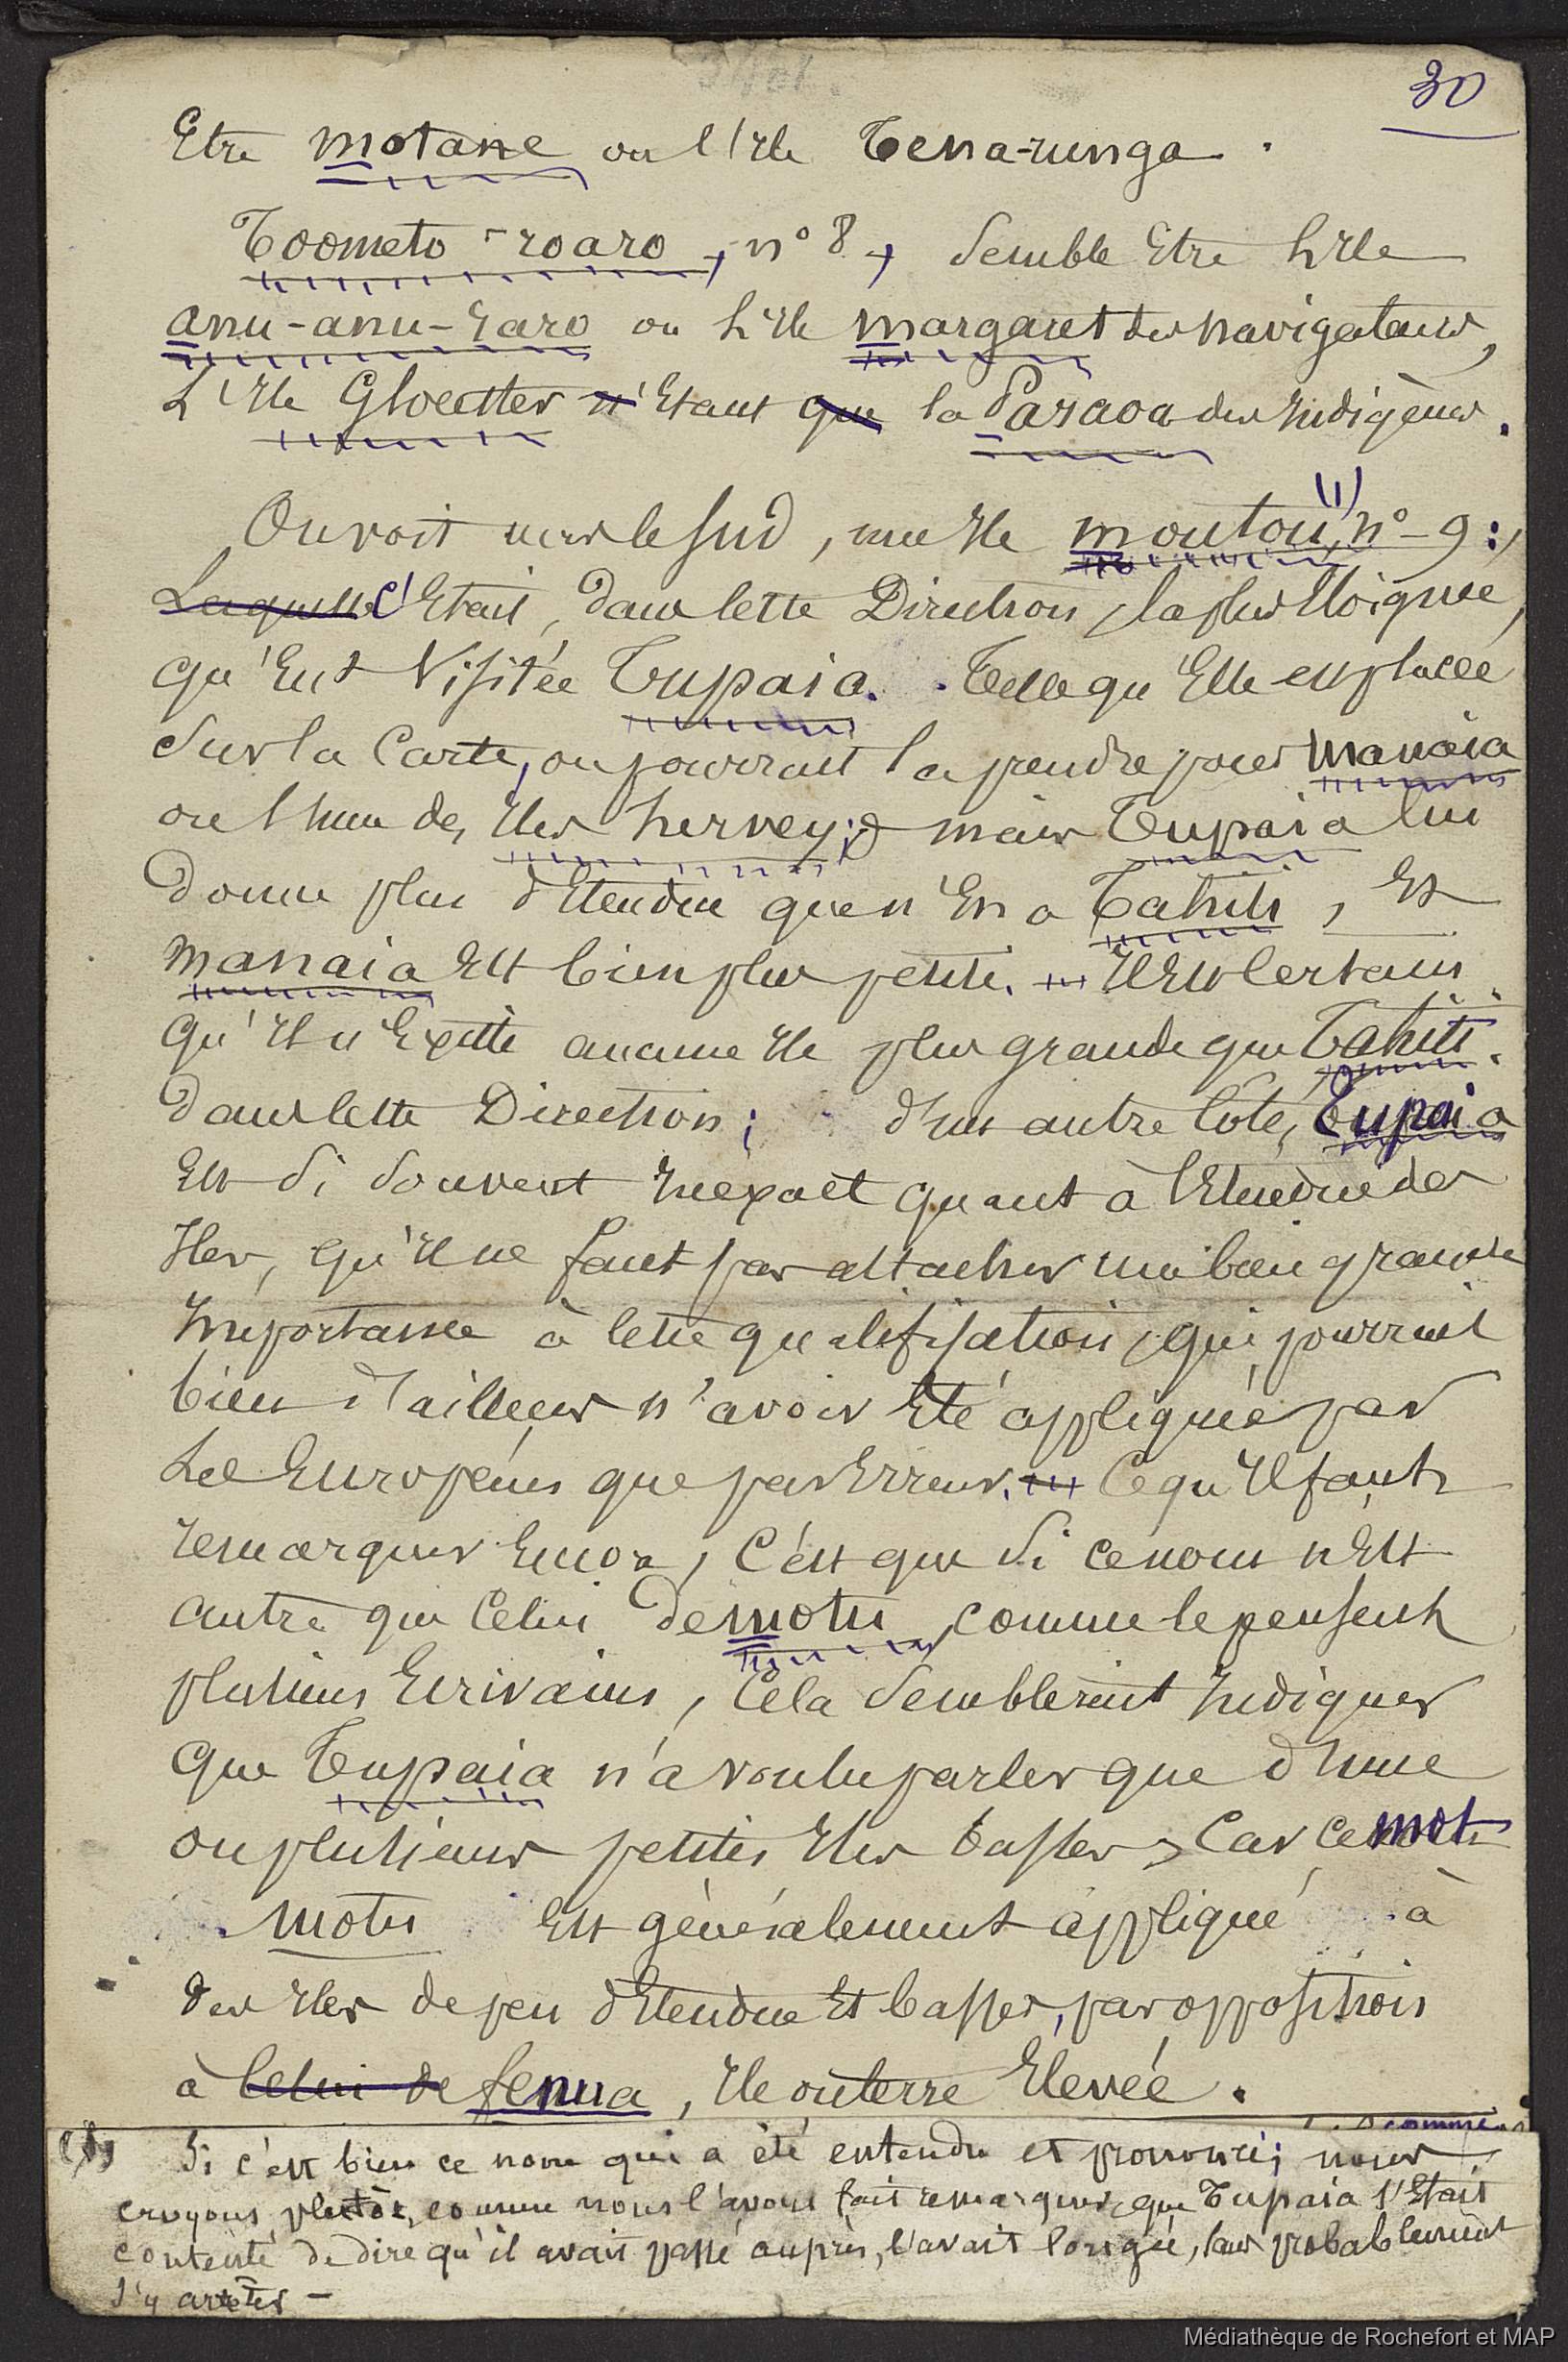 30
Etre Motane ou l'Ile Tena-runga.
Toometo-roaro, n° 8, semble Etre l'Ile
anu-anu-raro ou l'Ile Margaret des navigateurs,
L'Ile Gloecster n'Etant que la Paraoa des Indigènes.
On voit vers le sud, une Ile Moutou, (1) n° 9 :
Laquelle c'Etait, dans cette Direction, la plus Eloignée,
qu'Eut Visitée Tupaia. Telle qu'Elle est placée
sur la Carte, on pourrait la prendre pour Manaia
ou l'une des Iles hervey; mais Tupaia lui
donne plus d'Etendue que n'En a Tahiti, Et
Manaia Est bien plus petite. Il Est Certain
qu'Il n'Existe aucune Ile plus grande que Tahiti
dans cette Direction; d'un autre Côté, Tupaia
Est si souvent Inexact quant à l'Etendue des
Iles, qu'il ne faut pas attacher une bien grande
Importance à cette qualification, qui pourrait
bien d'ailleurs n'avoir Eté appliquée par
Les Européens que par Erreur. Ce qu'Il faut
remarquer Encore, C'est que si ce nom n'Est
autre que Celui de motu, comme le pensent
plusieurs Ecrivains, Cela semblerait Indiquer
que Tupaia n'a voulu parler que d'une
ou plusieurs petites Iles basses, Car ce mot
motu Est généralement appliqué à
des Iles de peu d'Etendue Et basses, par opposition
à Celui de fenua, Ile ou terre Elevée.
comme
(1) Si c'est bien ce nom qui a été entendu et prononcé; nous
croyons plutôt, comme nous l'avons fait remarquer, que Tupaia s'Etait
contenté de dire qu'il avait passé auprès, l'avait longé, sans probablement
s'y arrêter —
Médiathèque de Rochefort et MAP